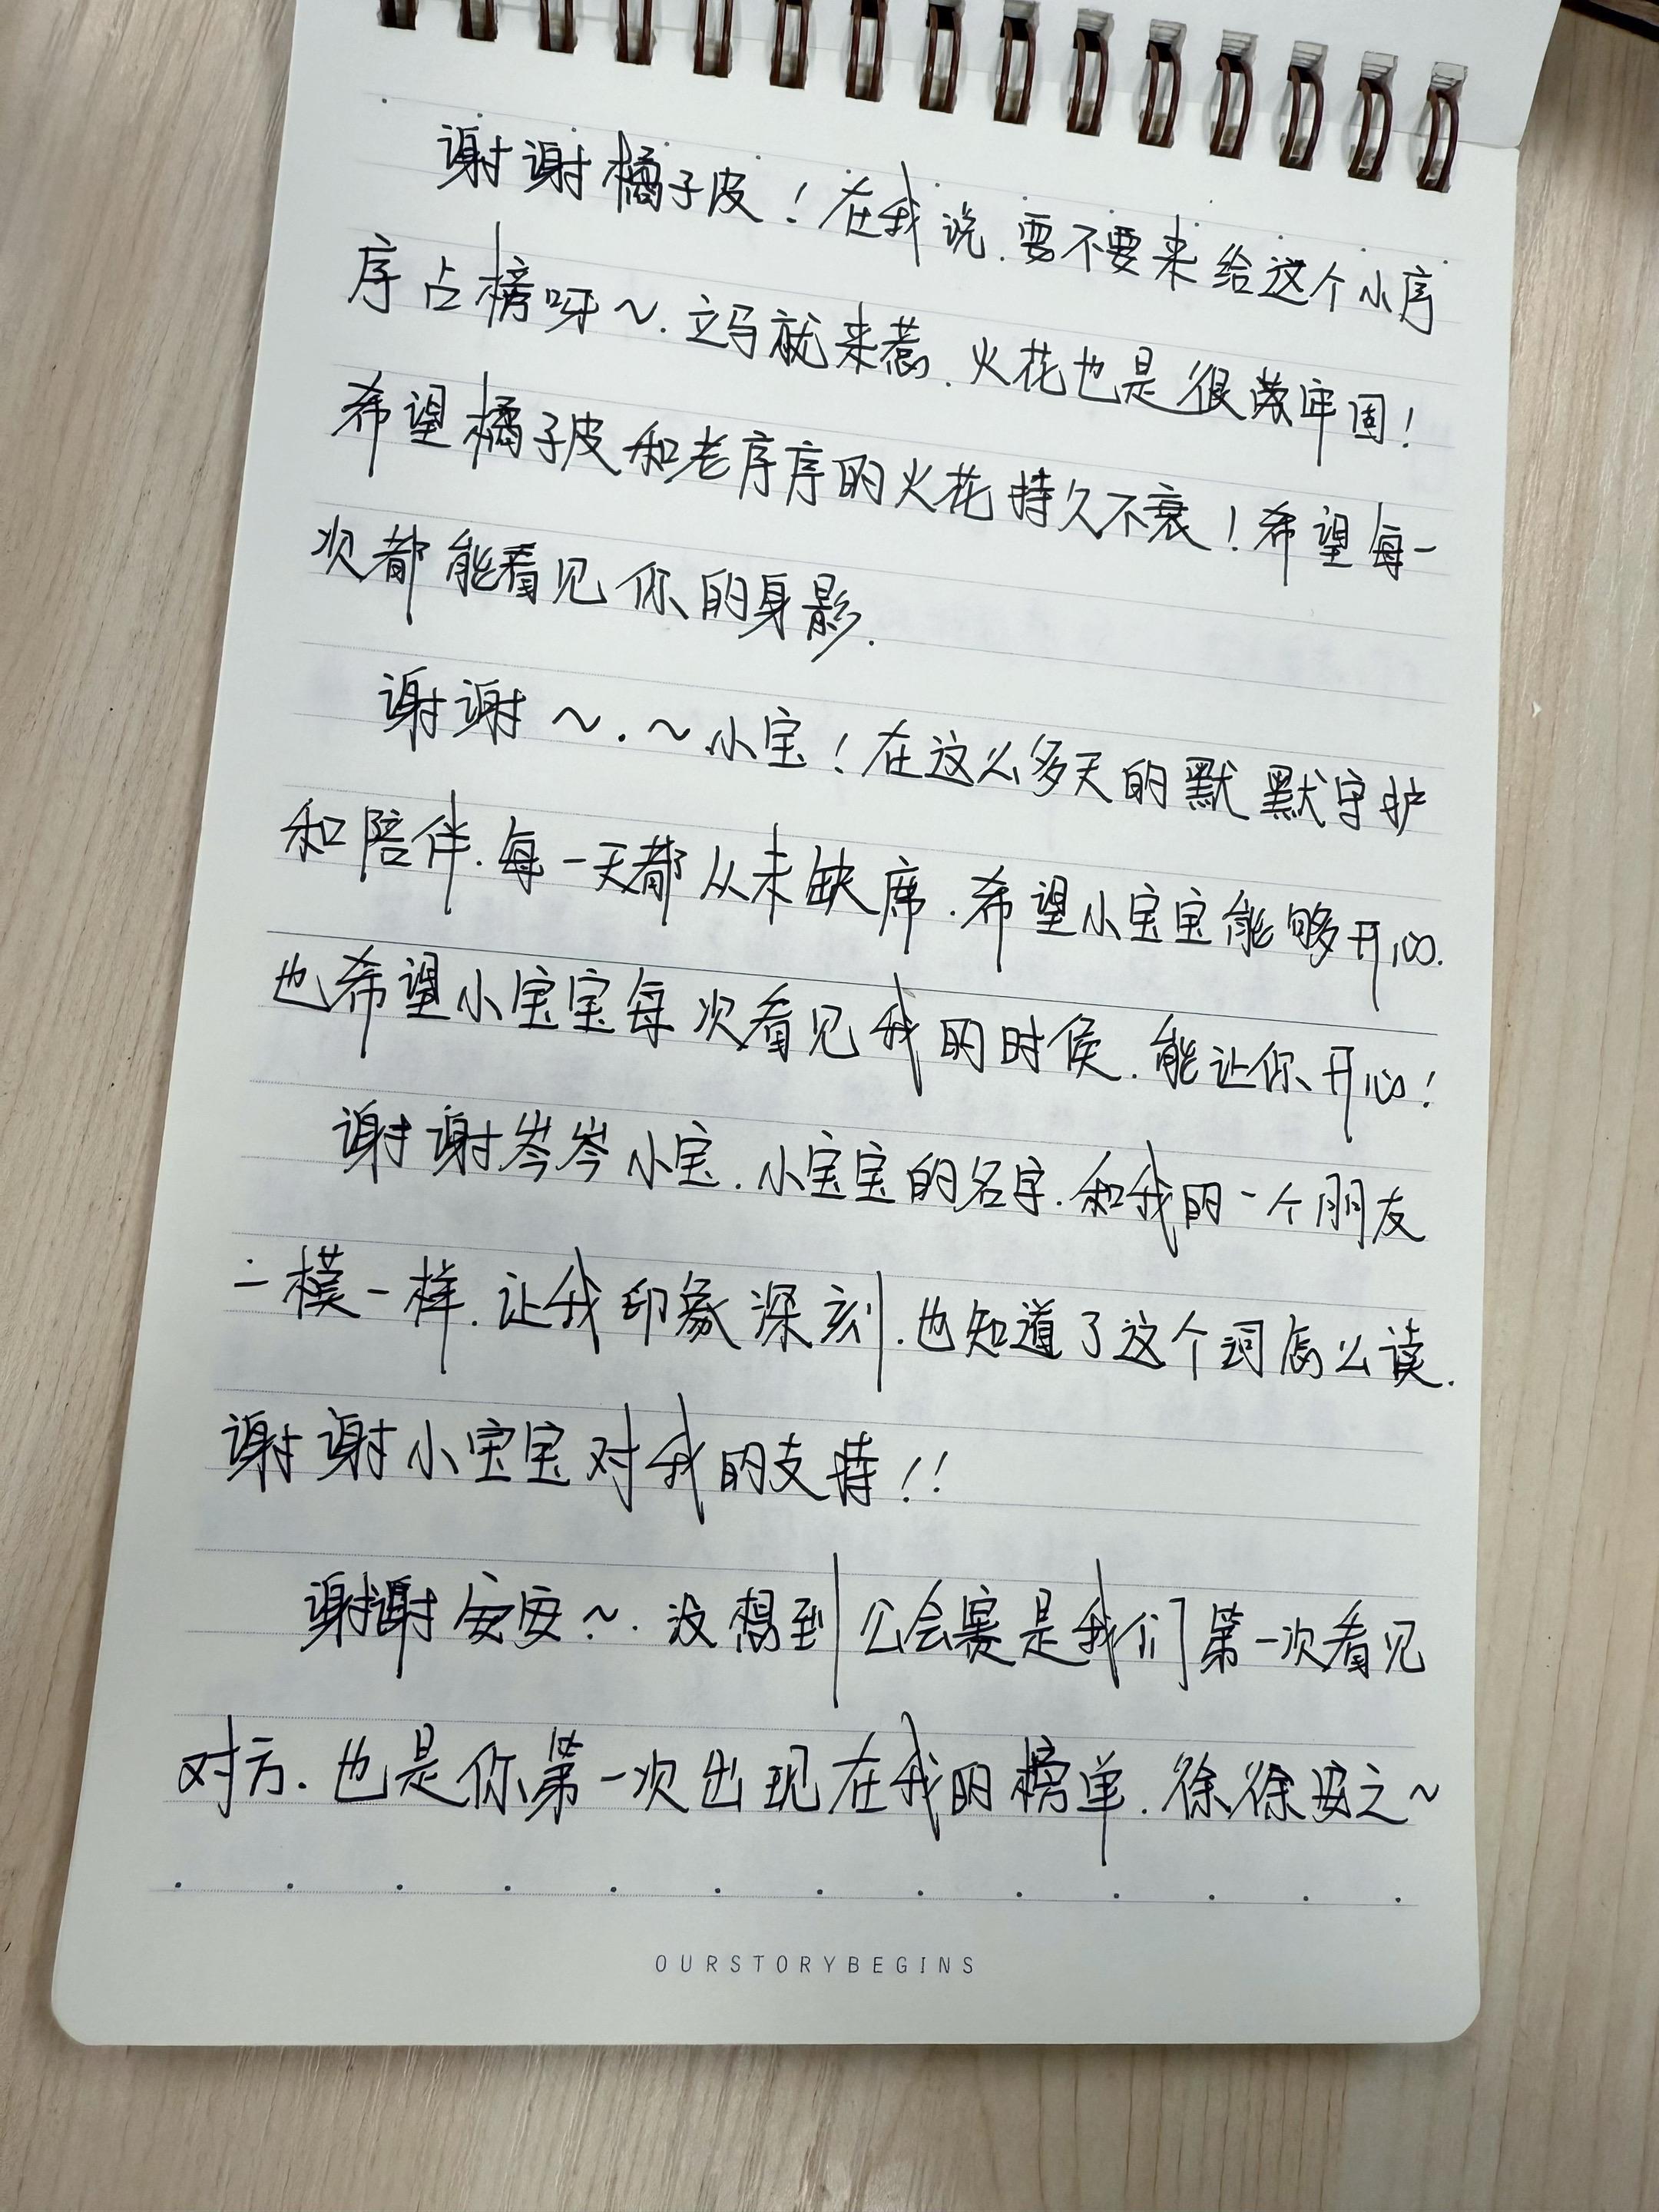 谢谢橘子皮！在我说.要不要来给这个小序
序占榜呀～.立马就来惹.火花也是很牢固！
希望橘子皮和老序序的火花持久不衰！希望每一
次都能看见你的身影.
谢谢～.～小宝！在这么多天的默默守护
和陪伴.每一天都从未缺席.希望小宝宝能够开心.
也希望小宝宝每次看见我的时候.能让你开心！
谢谢岑岑小宝.小宝宝的名字.和我的一个朋友
一模一样.让我印象深刻.也知道了这个词怎么读.
谢谢小宝宝对我的支持！！
谢谢安安～.没想到公会赛是我们第一次看见
对方.也是你第一次出现在我的榜单.徐徐安之～
OURSTORYBEGINS